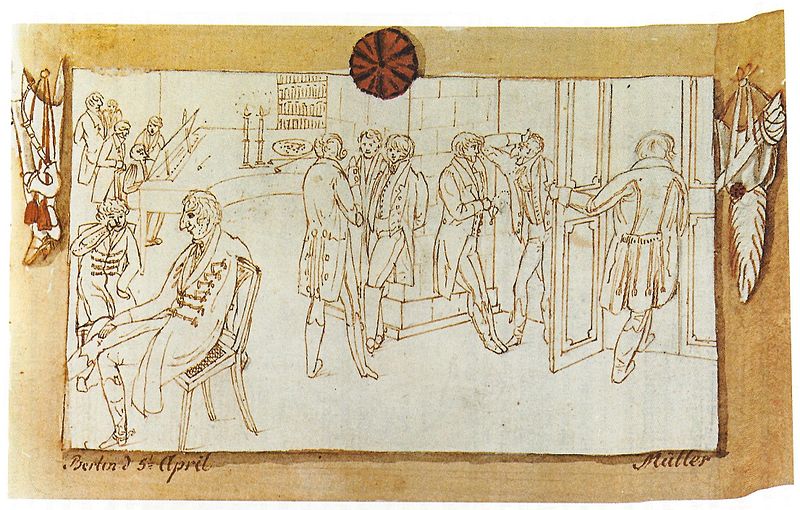 Berlin d 5t April
Müller